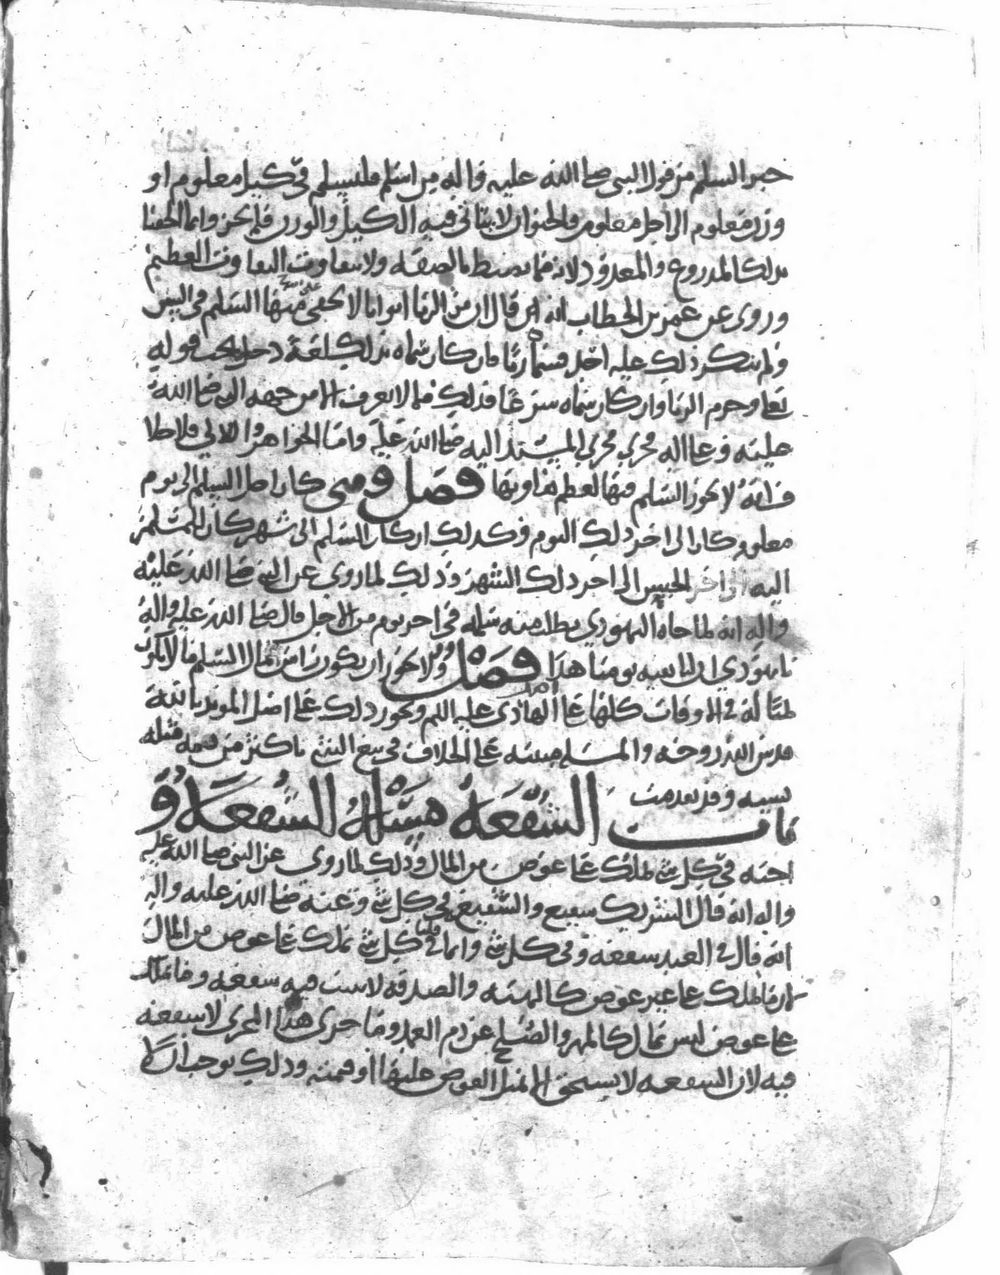 خبر السلم من قول النبي صلى الله عليه وآله من أسلم فليسلم في كيل معلوم أو
وزن معلوم إلى أجل معلوم والحيوان لا يتأتى فيه الكيل والوزن فلم يجز وإنما ألحقنا
بذلك المذروع والمعدود لأنه مما يضبط بالصفة ولا يتفاوت التفاوت العظيم
وروي عن عمر بن الخطاب أنه قال إن من الربا أبوابا لا تخفى منها السلم في السن
ولم ينكر ذلك عليه أحد فسماه ربا فإن كان سماه بذلك لغة دخل تحت قوله
تعالى وحرم الربا وإن كان سماه شرعا فذلك مما لا يعرف إلا من جهة النبي صلى الله
عليه وعلى آله فجرى مجرى المسند إليه صلى الله عليه وأما الجواهر واللآلي
فإنه لا يجوز السلم فيها لعظم تفاوتها فصل ومتى كان أجل السلم إلى يوم
معلوم كان إلى آخر ذلك اليوم وكذلك إن كان السلم إلى شهر كان للمسلم
إليه إلى آخر ذلك الشهر وذلك لما روي عن النبي صلى الله عليه
وآله أنه لما جاءه اليهودي يطلب منه سلمه في آخر يوم من الأجل قال صلى الله عليه وآله
يا يهودي إن لنا بقية يومنا هذا فصل ولا يجوز أن يكون رأس مال السلم مالا يكون
مثاله في الأوقات كلها على أصل الهادي عليه السلم ويجوز ذلك على أصل المؤيد بالله
قدس الله روحه والمسألة مبنية على الخلاف في بيع الشيء بأكثر من سعر مثله
نسية وقد تقدمت
باب الشفعة مسألة الشفعة
في كل شيء ملك على عوض من المال وذلك لما روي عن النبي صلى الله عليه
وآله أنه قال الشريك شفيع والشفيع في كل شيء وعنه صلى الله عليه وآله
أنه قال في العبد شفعة وفي كل شيء وإنما قلنا في كل شيء تملك على عوض من المال
لأن ما ملك على غير عوض كالهبة والصدقة لا تثبت فيه شفعة وما ملك
على عوض ليس بمال كالمهر والصلح عن دم العمد وما جرى هذا المجرى لا شفعة
فيه لأن الشفعة لا تستحق إلا بمثل العوض عليها أو قيمته وذلك يوجب أن